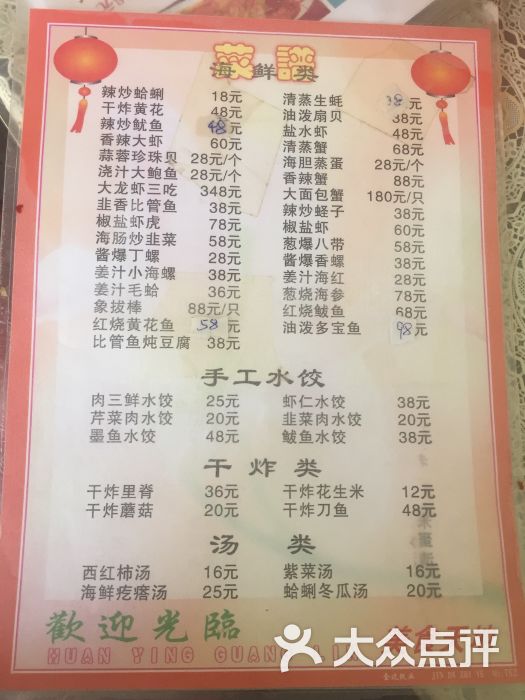 菜譜
海鲜类
辣炒蛤蜊 18元
干炸黄花 48元
辣炒鱿鱼 48元
香辣大虾 60元
蒜蓉珍珠贝 28元/个
浇汁大鲍鱼 28元/个
大龙虾三吃 348元
韭香比管鱼 38元
椒盐虾虎 78元
海肠炒韭菜 58元
酱爆丁螺 28元
姜汁小海螺 38元
姜汁毛蛤 36元
象拔棒 88元/只
红烧黄花鱼 58元
比管鱼炖豆腐 38元
清蒸生蚝 38元
油泼扇贝 38元
盐水虾 48元
清蒸蟹 68元
海胆蒸蛋 28元/个
香辣蟹 88元
大面包蟹 180元/只
辣炒蛏子 38元
椒盐虾 60元
葱爆八带 58元
酱爆香螺 38元
姜汁海红 28元
葱烧海参 78元
红烧鲅鱼 68元
油泼多宝鱼 98元
手工水饺
肉三鲜水饺 25元
芹菜肉水饺 20元
墨鱼水饺 48元
虾仁水饺 38元
韭菜肉水饺 20元
鲅鱼水饺 38元
干炸类
干炸里脊 36元
干炸蘑菇 20元
干炸花生米 12元
干炸刀鱼 48元
汤类
西红柿汤 16元
海鲜疙瘩汤 25元
紫菜汤 16元
蛤蜊冬瓜汤 20元
歡迎光臨
HUAN YING GUANG LIN
大众点评